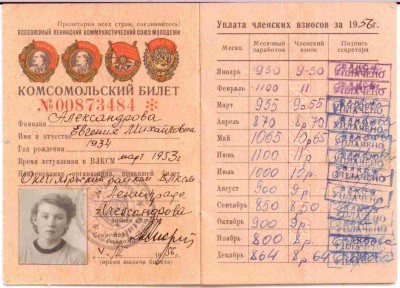 Пролетарии всех стран, соединяйтесь!
ВСЕСОЮЗНЫЙ ЛЕНИНСКИЙ КОММУНИСТИЧЕСКИЙ СОЮЗ МОЛОДЕЖИ
КОМСОМОЛЬСКИЙ БИЛЕТ
№ 00873484
Фамилия Александрова
Имя и отчество Евгения Михайловна
Год рождения 1934
Время вступления в ВЛКСМ март 1953г
Наименование организации, выдавшей билет
Октябрьский райком ВЛКСМ
г. Ленинграда
Александрова
Секретарь
V 1956 г.
(время выдачи билета)
Уплата членских взносов за 1956 г.
Месяц Месячный заработок Членский взнос Подпись секретаря
Январь 950 9-50 УПЛАЧЕНО
Февраль 1100 11 УПЛАЧЕНО
Март 955 9р55 УПЛАЧЕНО
Апрель 870 8р70 УПЛАЧЕНО
Май 1065 10р65 УПЛАЧЕНО
Июнь 1100 11р УПЛАЧЕНО
Июль 1000 10р УПЛАЧЕНО
Август 900 9р. УПЛАЧЕНО
Сентябрь 850 8р50 УПЛАЧЕНО
Октябрь 900 9р. УПЛАЧЕНО
Ноябрь 800 8р. УПЛАЧЕНО
Декабрь 864 8р64 УПЛАЧЕНО